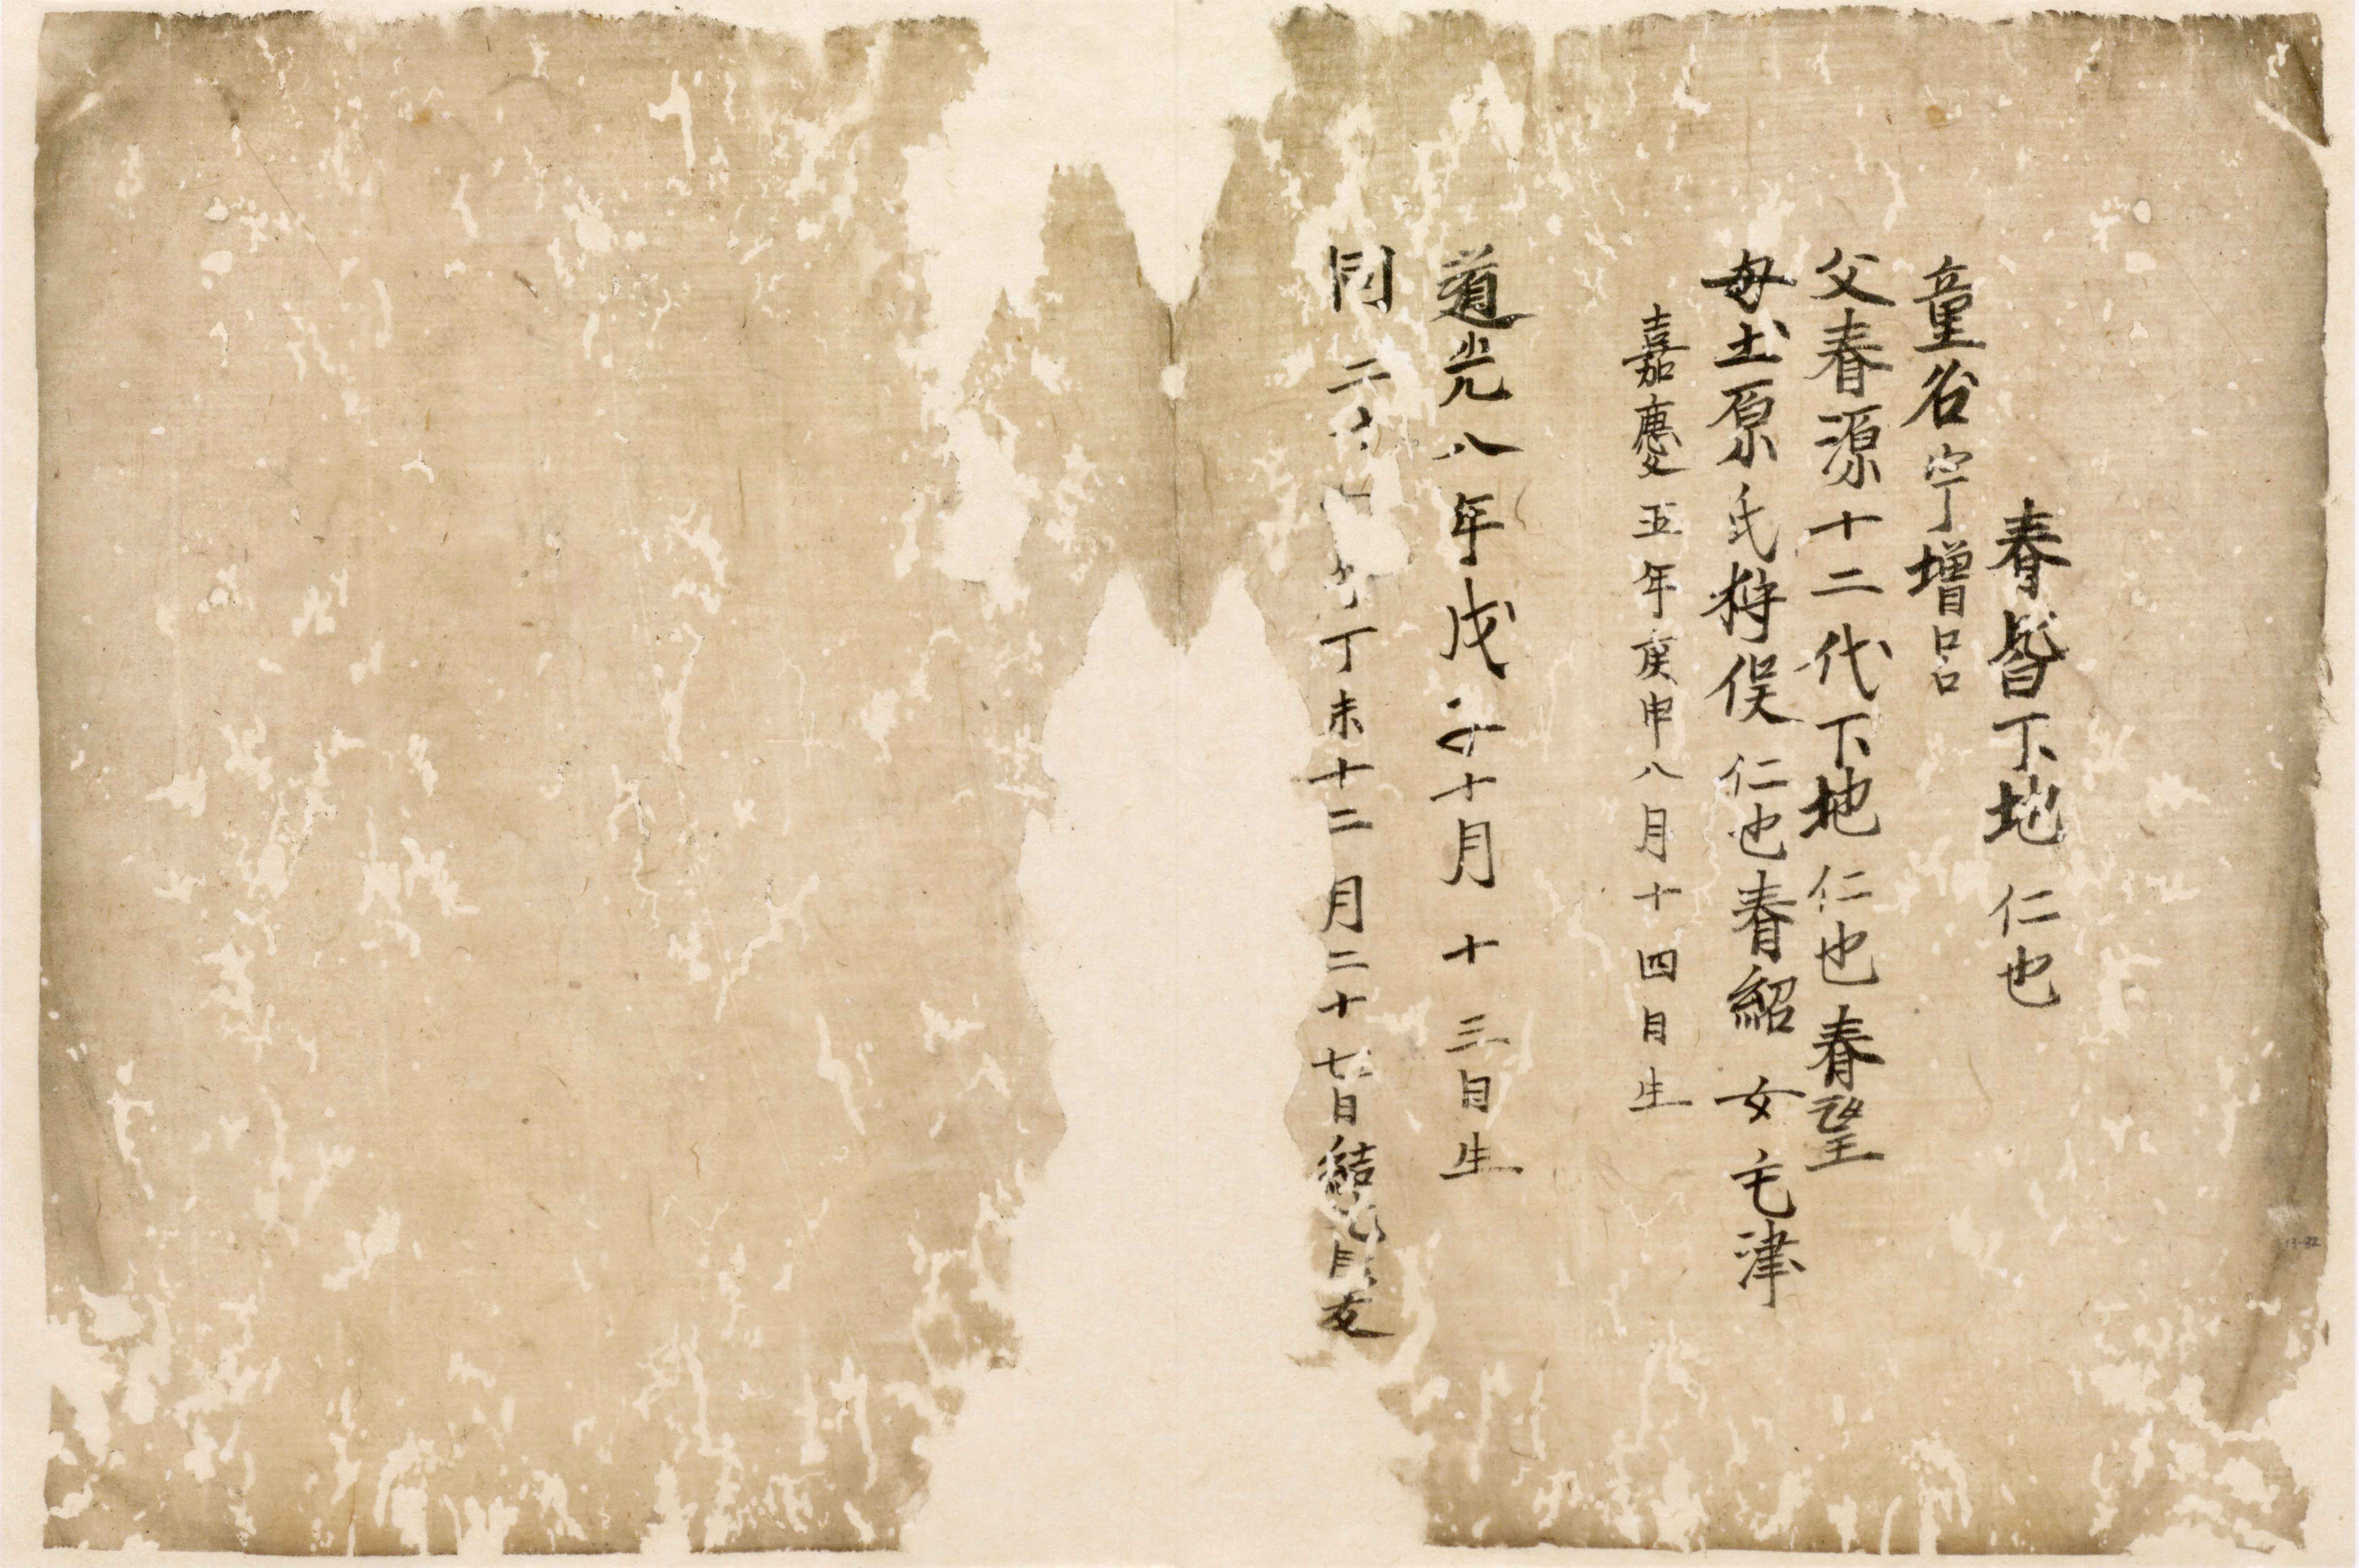 春昔下地 仁也
童名宇増呂
父春源十二代下地仁也春望
母土原氏狩俣仁也春紹女毛津
嘉慶五年庚申八月十四日生
道光八年戊子十月十三日生
同二十七年丁未十二月二十七日結